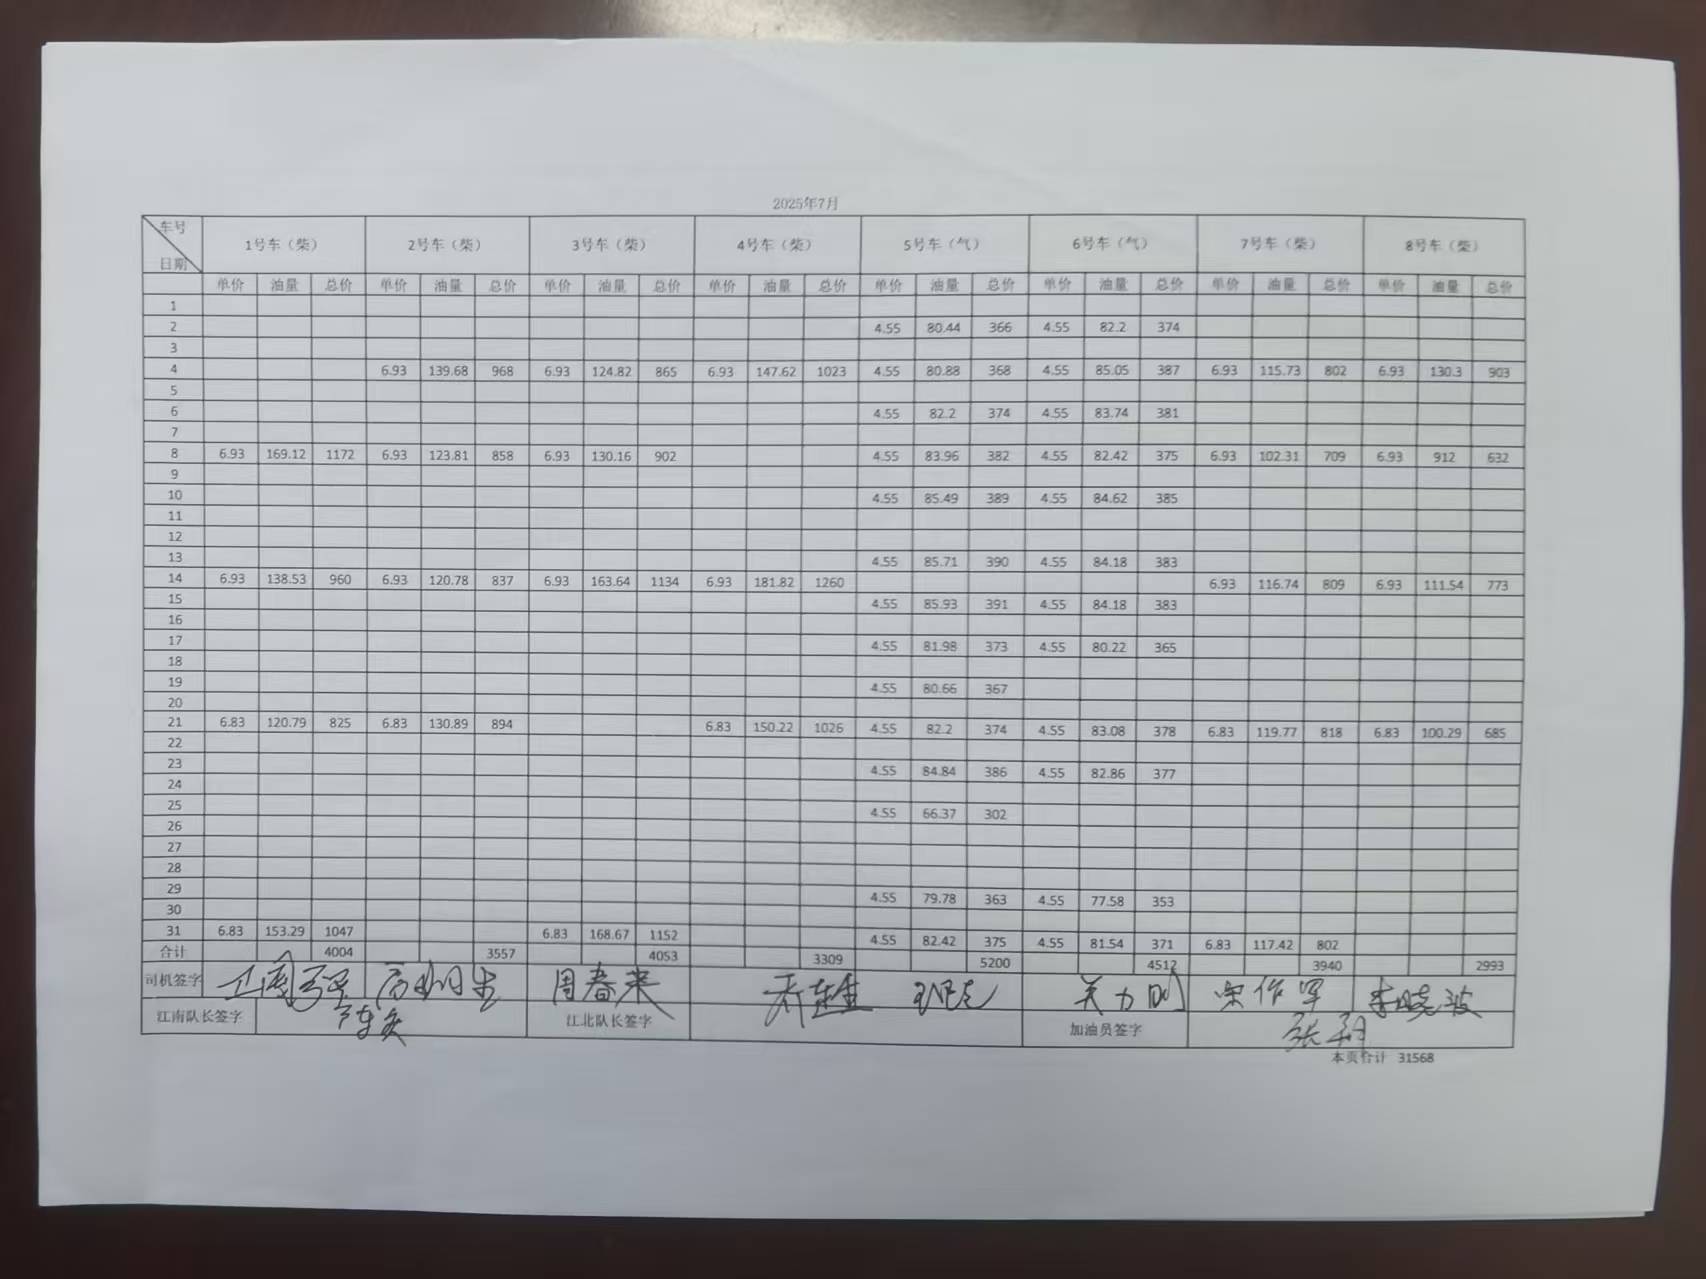 2025年7月
车号 1号车（柴） 2号车（柴） 3号车（柴） 4号车（柴） 5号车（气） 6号车（气） 7号车（柴） 8号车（柴）
日期
单价 油量 总价 单价 油量 总价 单价 油量 总价 单价 油量 总价 单价 油量 总价 单价 油量 总价 单价 油量 总价 单价 油量 总价
1
2 4.55 80.44 366 4.55 82.2 374
3
4 6.93 139.68 968 6.93 124.82 865 6.93 147.62 1023 4.55 80.88 368 4.55 85.05 387 6.93 115.73 802 6.93 130.3 903
5
6 4.55 82.2 374 4.55 83.74 381
7
8 6.93 169.12 1172 6.93 123.81 858 6.93 130.16 902 4.55 83.96 382 4.55 82.42 375 6.93 102.31 709 6.93 912 632
9
10 4.55 85.49 389 4.55 84.62 385
11
12
13 4.55 85.71 390 4.55 84.18 383
14 6.93 138.53 960 6.93 120.78 837 6.93 163.64 1134 6.93 181.82 1260 6.93 116.74 809 6.93 111.54 773
15 4.55 85.93 391 4.55 84.18 383
16
17 4.55 81.98 373 4.55 80.22 365
18
19 4.55 80.66 367
20
21 6.83 120.79 825 6.83 130.89 894 6.83 150.22 1026 4.55 82.2 374 4.55 83.08 378 6.83 119.77 818 6.83 100.29 685
22
23 4.55 84.84 386 4.55 82.86 377
24
25 4.55 66.37 302
26
27
28
29 4.55 79.78 363 4.55 77.58 353
30
31 6.83 153.29 1047 6.83 168.67 1152 4.55 82.42 375 4.55 81.54 371 6.83 117.42 802
合计 4004 3557 4053 3309 5200 4512 3940 2993
司机签字 周春来 关力刚 李晓波
江南队长签字 江北队长签字 加油员签字 张翔
本页合计 31568